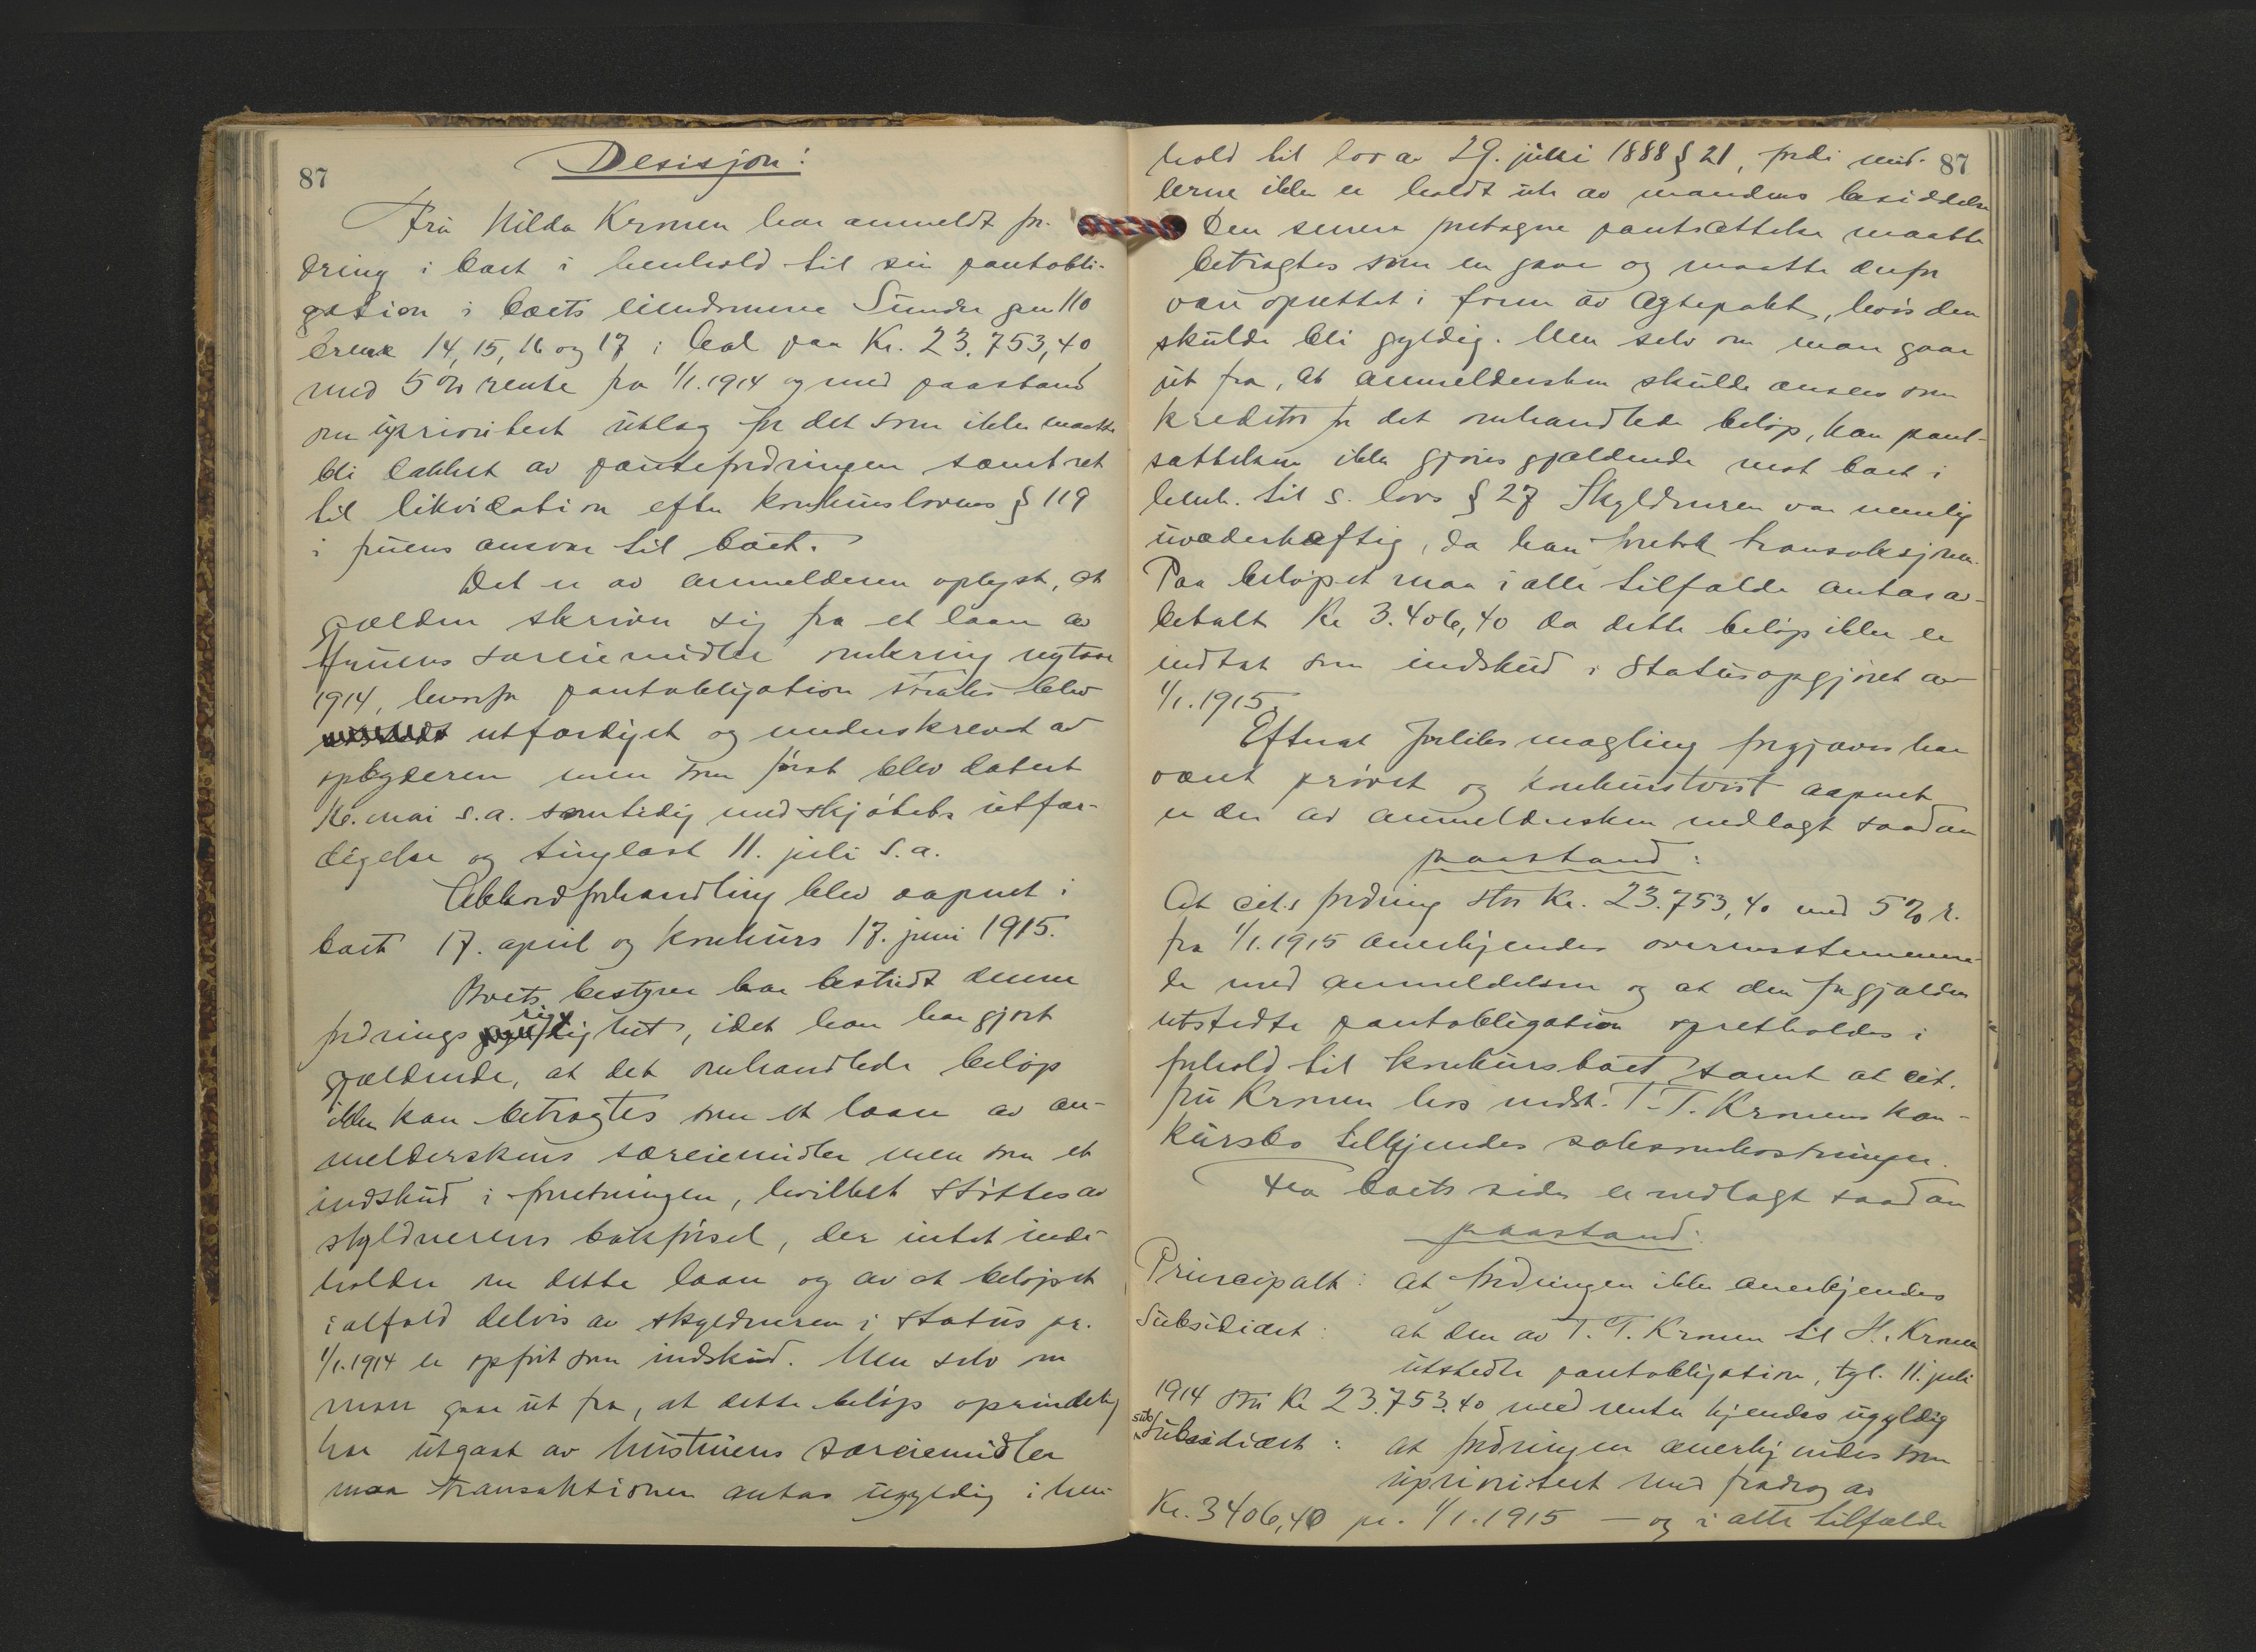 87
Desisjon:
Fru Hilda Kronen har anmeldt for-
dring i boet i henhold til sin pantobli-
gation i boets eiendomme Sundre gnr 110
brnr 14, 15, 16 og 17 i Aal paa Kr. 23.753,40
med 5% rente fra 1/1.1914 og med paastand
om uprioritert utlæg for det som ikke maatte
bli dækket av pantefordringen samt ret
til likvidation efter konkurslovens § 119
i fruens ansvar til boet.
Det er av anmelderen oplyst, at
gjælden skriver sig fra et laan av
fruens særeiemidler omkring nytaar
1914, hvorfor pantobligation straks blev
utfærdiget og underskrevet av
opbyderen men som først blev datert
16. mai s.a. samtidig med skjøtets utfær-
digelse og tinglæst 11. juli s.a.
Akkordforhandling blev aapnet i
boet 17. april og konkurs 17. juni 1915.
Boets bestyrer har bestridt denne
fordrings rigtighet, idet han har gjort
gjældende, at det omhandlede beløp
ikke kan betragtes som et laan av an-
melderskens særeiemidler men som et
indskud i forretningen, hvilket støttes av
skyldnerens bokførsel, der intet inde-
holder om dette laan og av at beløpet
ialfald delvis av skyldneren i status pr.
1/1.1914 er opført som indskud. Men selv om
man gaar ut fra, at dette beløp oprindelig
har utgaat av hustruens særeiemidler
maa transaktionen antas ugyldig i hen-
87
hold til lov av 29. juni 1888 § 21, fordi mid-
lerne ikke er holdt ute av mandens besiddelse
Den senere foretagne pantsættelse maatte
betragtes som en gave og maatte derfor
være oprettet i form av ægtepakt, hvis den
skulde bli gyldig. Men selv om man gaar
ut fra, at anmeldersken skulde ansees som
kreditor for det omhandlede beløp, kan pant-
sættelsen ikke gjøres gjældende mot boet i
henh. til s. lovs § 27 Skyldneren var nemlig
uvederhæftig, da han foretok transaksjonen.
Paa beløpet maa i alle tilfælde antas av-
betalt Kr 3.406,40 da dette beløp ikke er
indtat som indskud i statusopgjøret av
1/1.1915.
Efterat forliksmægling forgjæves har
været prøvet og konkurstvist aapnet
er der av anmeldersken nedlagt saadan
paastand:
At cit.s fordring stor Kr. 23.753,40 med 5% r.
fra 1/1.1915 anerkjendes overensstemmen-
de med anmeldelsen og at den for gjælden
utstedte pantobligation opretholdes i
forhold til konkursboet samt at cit.
fru Kronen hos indst. T. T. Kronens kon-
kursbo tilkjendes saksomkostninger.
Fra boets side er nedlagt saadan
paastand:
Principalt: at fordringen ikke anerkjendes
Subsidiært: at den av T. T. Kronen til H. Kronen
utstedte pantobligation, tgl. 11. juli
1914 stor Kr 23.753.40 med renter kjendes ugyldig
sub/subsidiært: at fordringen anerkjendes som
uprioritert med fradrag av
Kr. 3406,40 pr. 1/1.1915 — og i alle tilfælde